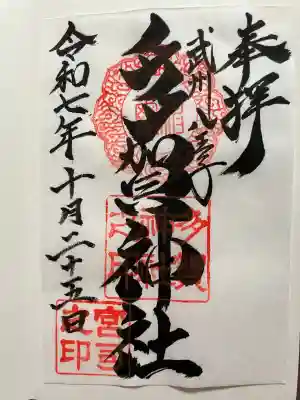 奉拝
武州八王子
多賀神社
令和七年十月二十五日
多賀神社之印
宮司之印